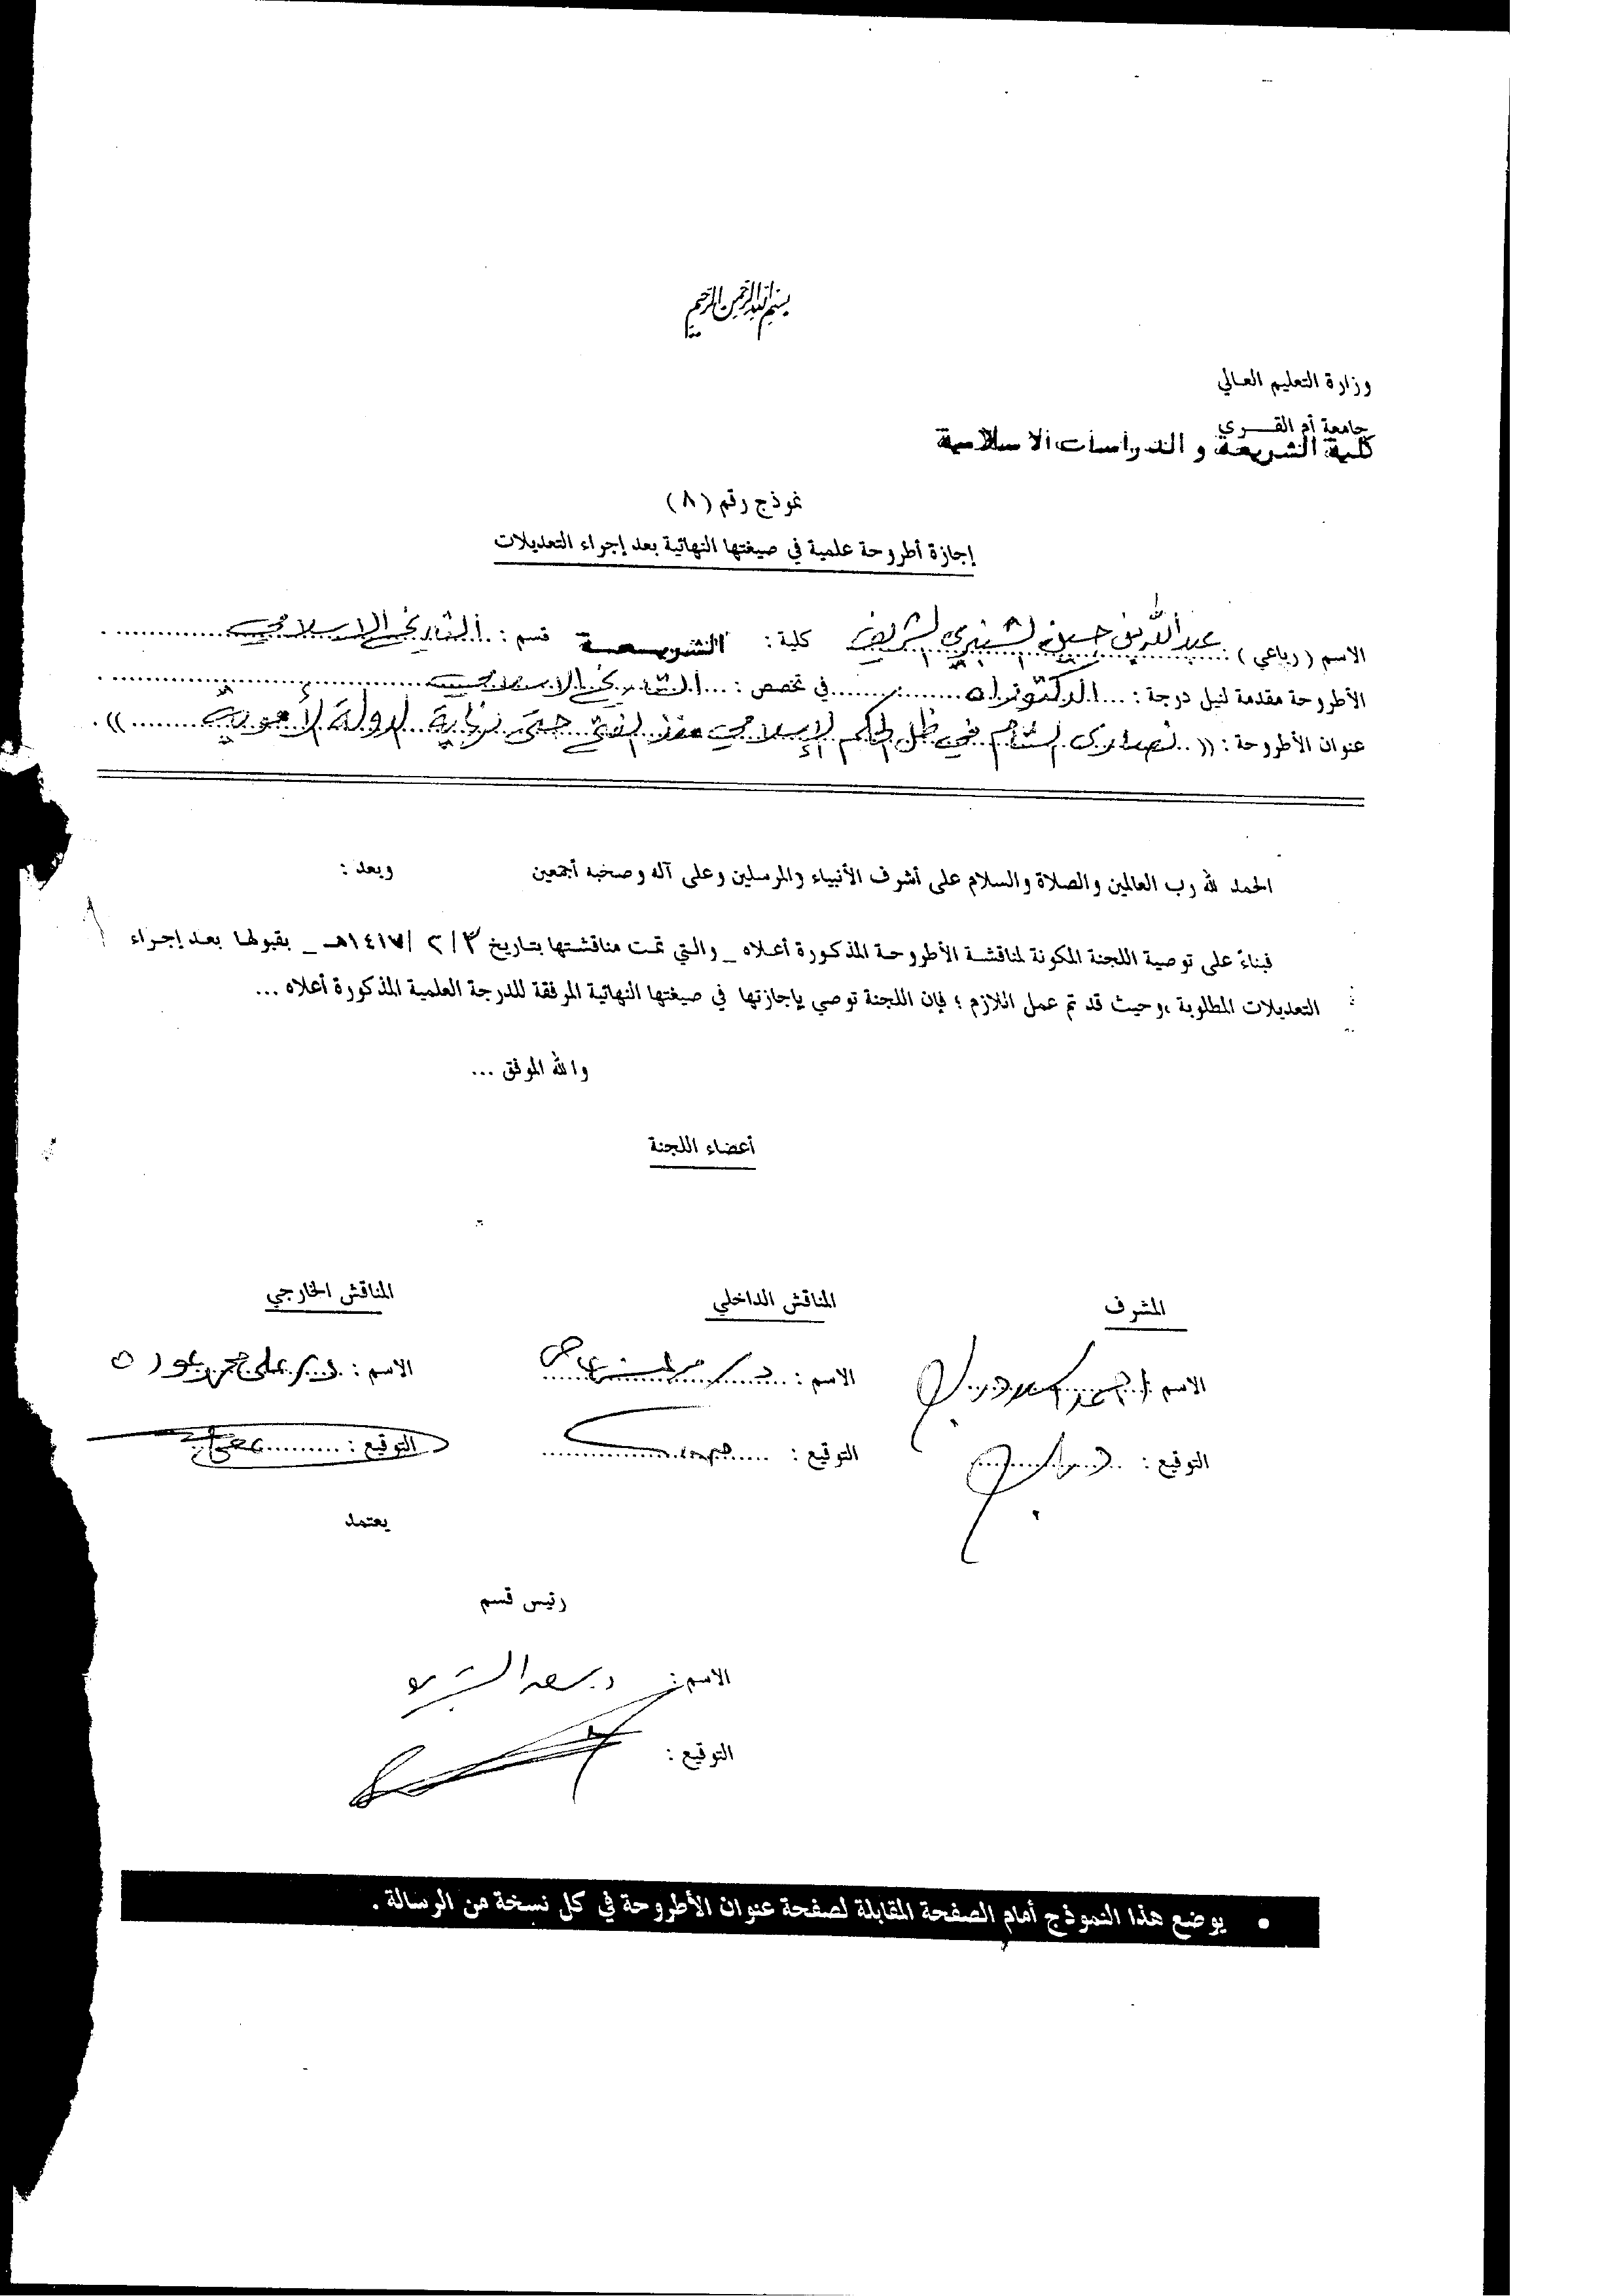 بسم الله الرحمن الرحيم
وزارة التعليم العالي
جامعة أم القـــرى
كلية الشريعة و الدراسات الاسلامية
نموذج رقم (٨)
إجازة أطروحة علمية في صيغتها النهائية بعد إجراء التعديلات
الاسم (رباعي) : عبدالله بن حسين الشنبري الشريف كلية : الشريعـــة قسم : التاريخ الاسلامي
الأطروحة مقدمة لنيل درجة : الدكتوراه في تخصص : التاريخ الاسلامي
عنوان الأطروحة : (( نصارى الشام في ظل الحكم الإسلامي منذ الفتح حتى نهاية الدولة الأموية )) .
الحمد لله رب العالمين والصلاة والسلام على أشرف الأنبياء والمرسلين وعلى آله وصحبه أجمعين وبعد :
فبناءً على توصية اللجنة المكونة لمناقشة الأطروحة المذكورة أعلاه _ والتي تمت مناقشتها بتاريخ ٣/ ٢ /١٤١٧هـ _ بقبولها بعد إجراء
التعديلات المطلوبة ،وحيث قد تم عمل اللازم ؛ فإن اللجنة توصي بإجازتها في صيغتها النهائية المرفقة للدرجة العلمية المذكورة أعلاه ...
والله الموفق ...
أعضاء اللجنة
المشرف المناقش الداخلي المناقش الخارجي
الاسم : أحمد السيد دراج الاسم : د. الاسم : د. علي محمد عودة
التوقيع : التوقيع : التوقيع :
يعتمد
رئيس قسم
الاسم : د. سعد
التوقيع :
• يوضع هذا النموذج أمام الصفحة المقابلة لصفحة عنوان الأطروحة في كل نسخة من الرسالة .